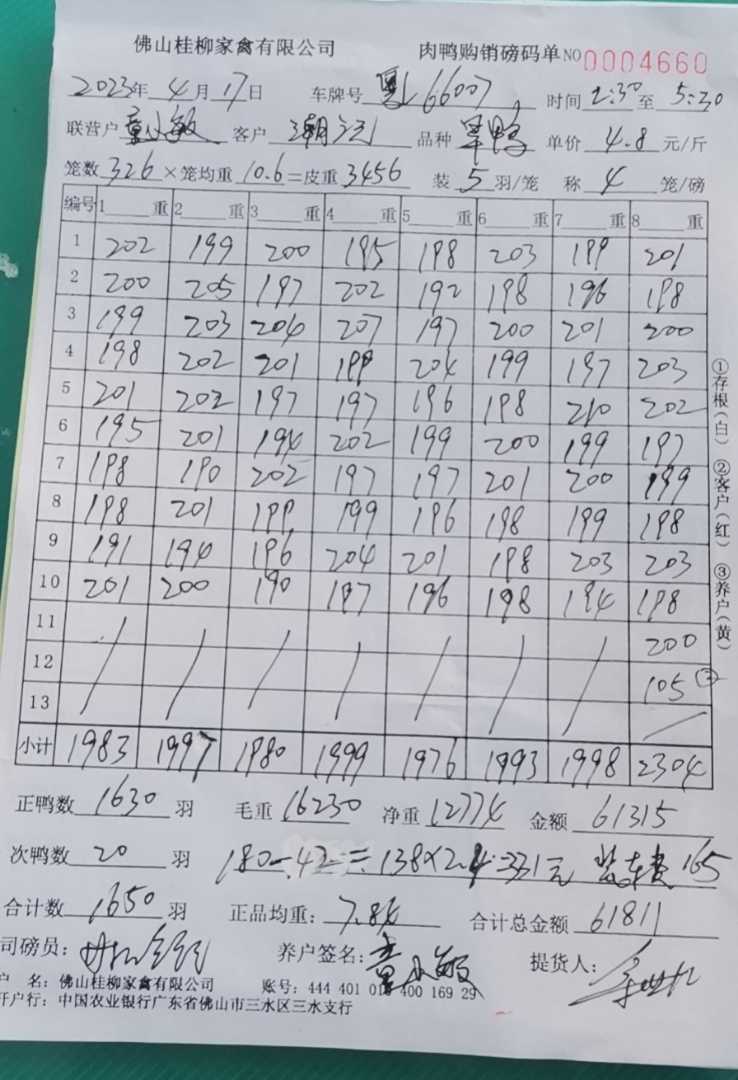 佛山桂柳家禽有限公司 肉鸭购销磅码单 NO 0004660
2023年 4月 17日 车牌号 粤L66007 时间 2:30 至 5:30
联营户 童小敏 客户 潮记 品种 草鸭 单价 4.8 元/斤
笼数 326 ×笼均重 10.6 =皮重 3456 装 5 羽/笼 称 4 笼/磅
编号 1 重 2 重 3 重 4 重 5 重 6 重 7 重 8 重
1 202 199 200 195 198 203 199 201
2 200 205 197 202 192 198 196 198
3 199 203 204 207 197 200 201 200
4 198 202 201 199 204 199 197 203
5 201 202 197 197 196 198 210 202
6 195 201 194 202 199 200 199 197
7 198 190 202 197 197 201 200 199
8 198 201 199 199 196 198 199 198
9 191 194 196 204 201 198 203 203
10 201 200 190 197 196 198 194 198
11 / / / / / / / 200
12 105
13 /
小计 1983 1997 1980 1999 1976 1993 1998 2304
正鸭数 1630 羽 毛重 16230 净重 12774 金额 61315
次鸭数 20 羽 180-42=138×2.4=331元 装车费 165
合计数 1650 羽 正品均重: 7.84 合计总金额 61811
司磅员: 养户签名: 童小敏 提货人:
户 名: 佛山桂柳家禽有限公司 账号: 444 401 010 400 169 29
开户行: 中国农业银行广东省佛山市三水区三水支行
①存根(白) ②客户(红) ③养户(黄)